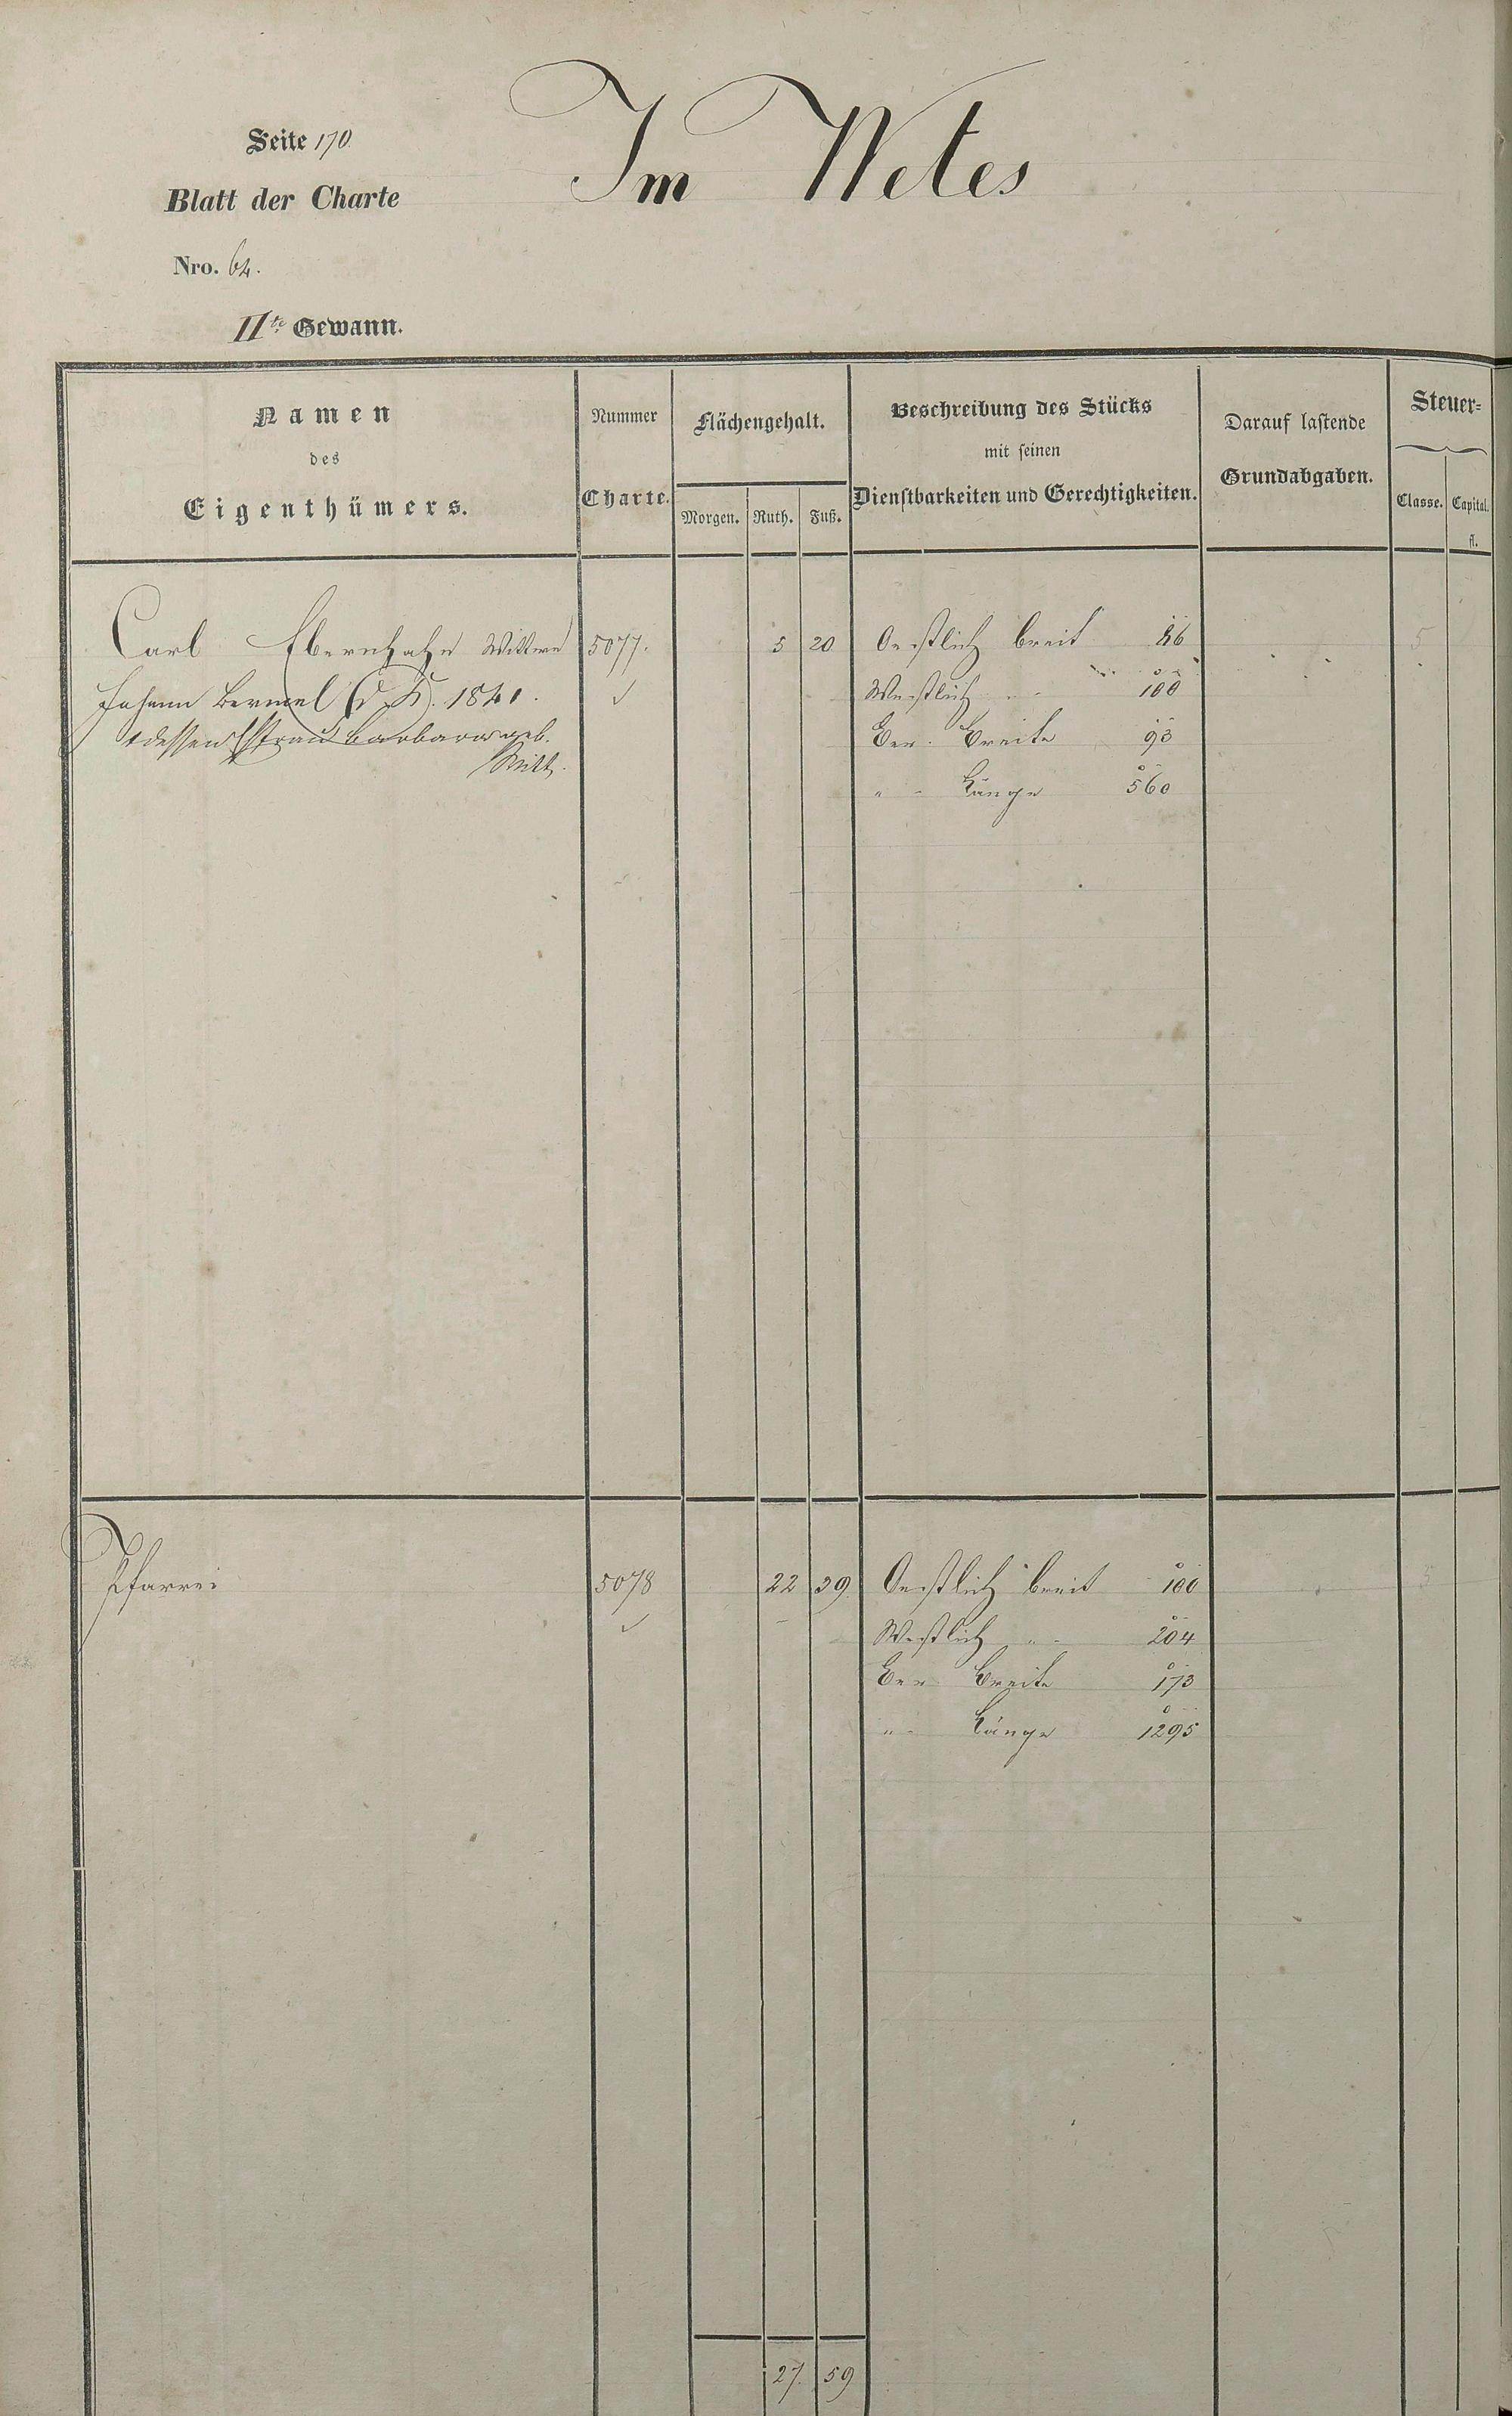 Im Wetes
Seite 170
Blatt der Charte
Nro. 64.
IIte Gewann.
Namen
des
Eigenthümers.
Nummer
Charte.
Flächengehalt.
Morgen. Ruth. Fuß.
Beschreibung des Stücks
mit seinen
Dienstbarkeiten und Gerechtigkeiten.
Darauf lastende
Grundabgaben.
Steuer-
Classe. Capital.
fl.
Carl Ebernhahn Wittwe 5077. 5 20 Oestlich breit 86 5
Johann Bermel 1840. Westlich " - 100
dessen Ehefrau Barbara geb. Ber. Breite 93
Witt.
" - Länge 560
Pfarrei 5078 22 39 Oestlich breit 100 5
Westlich " - 204
Ber Breite 173
" - Länge 1295
27. 59